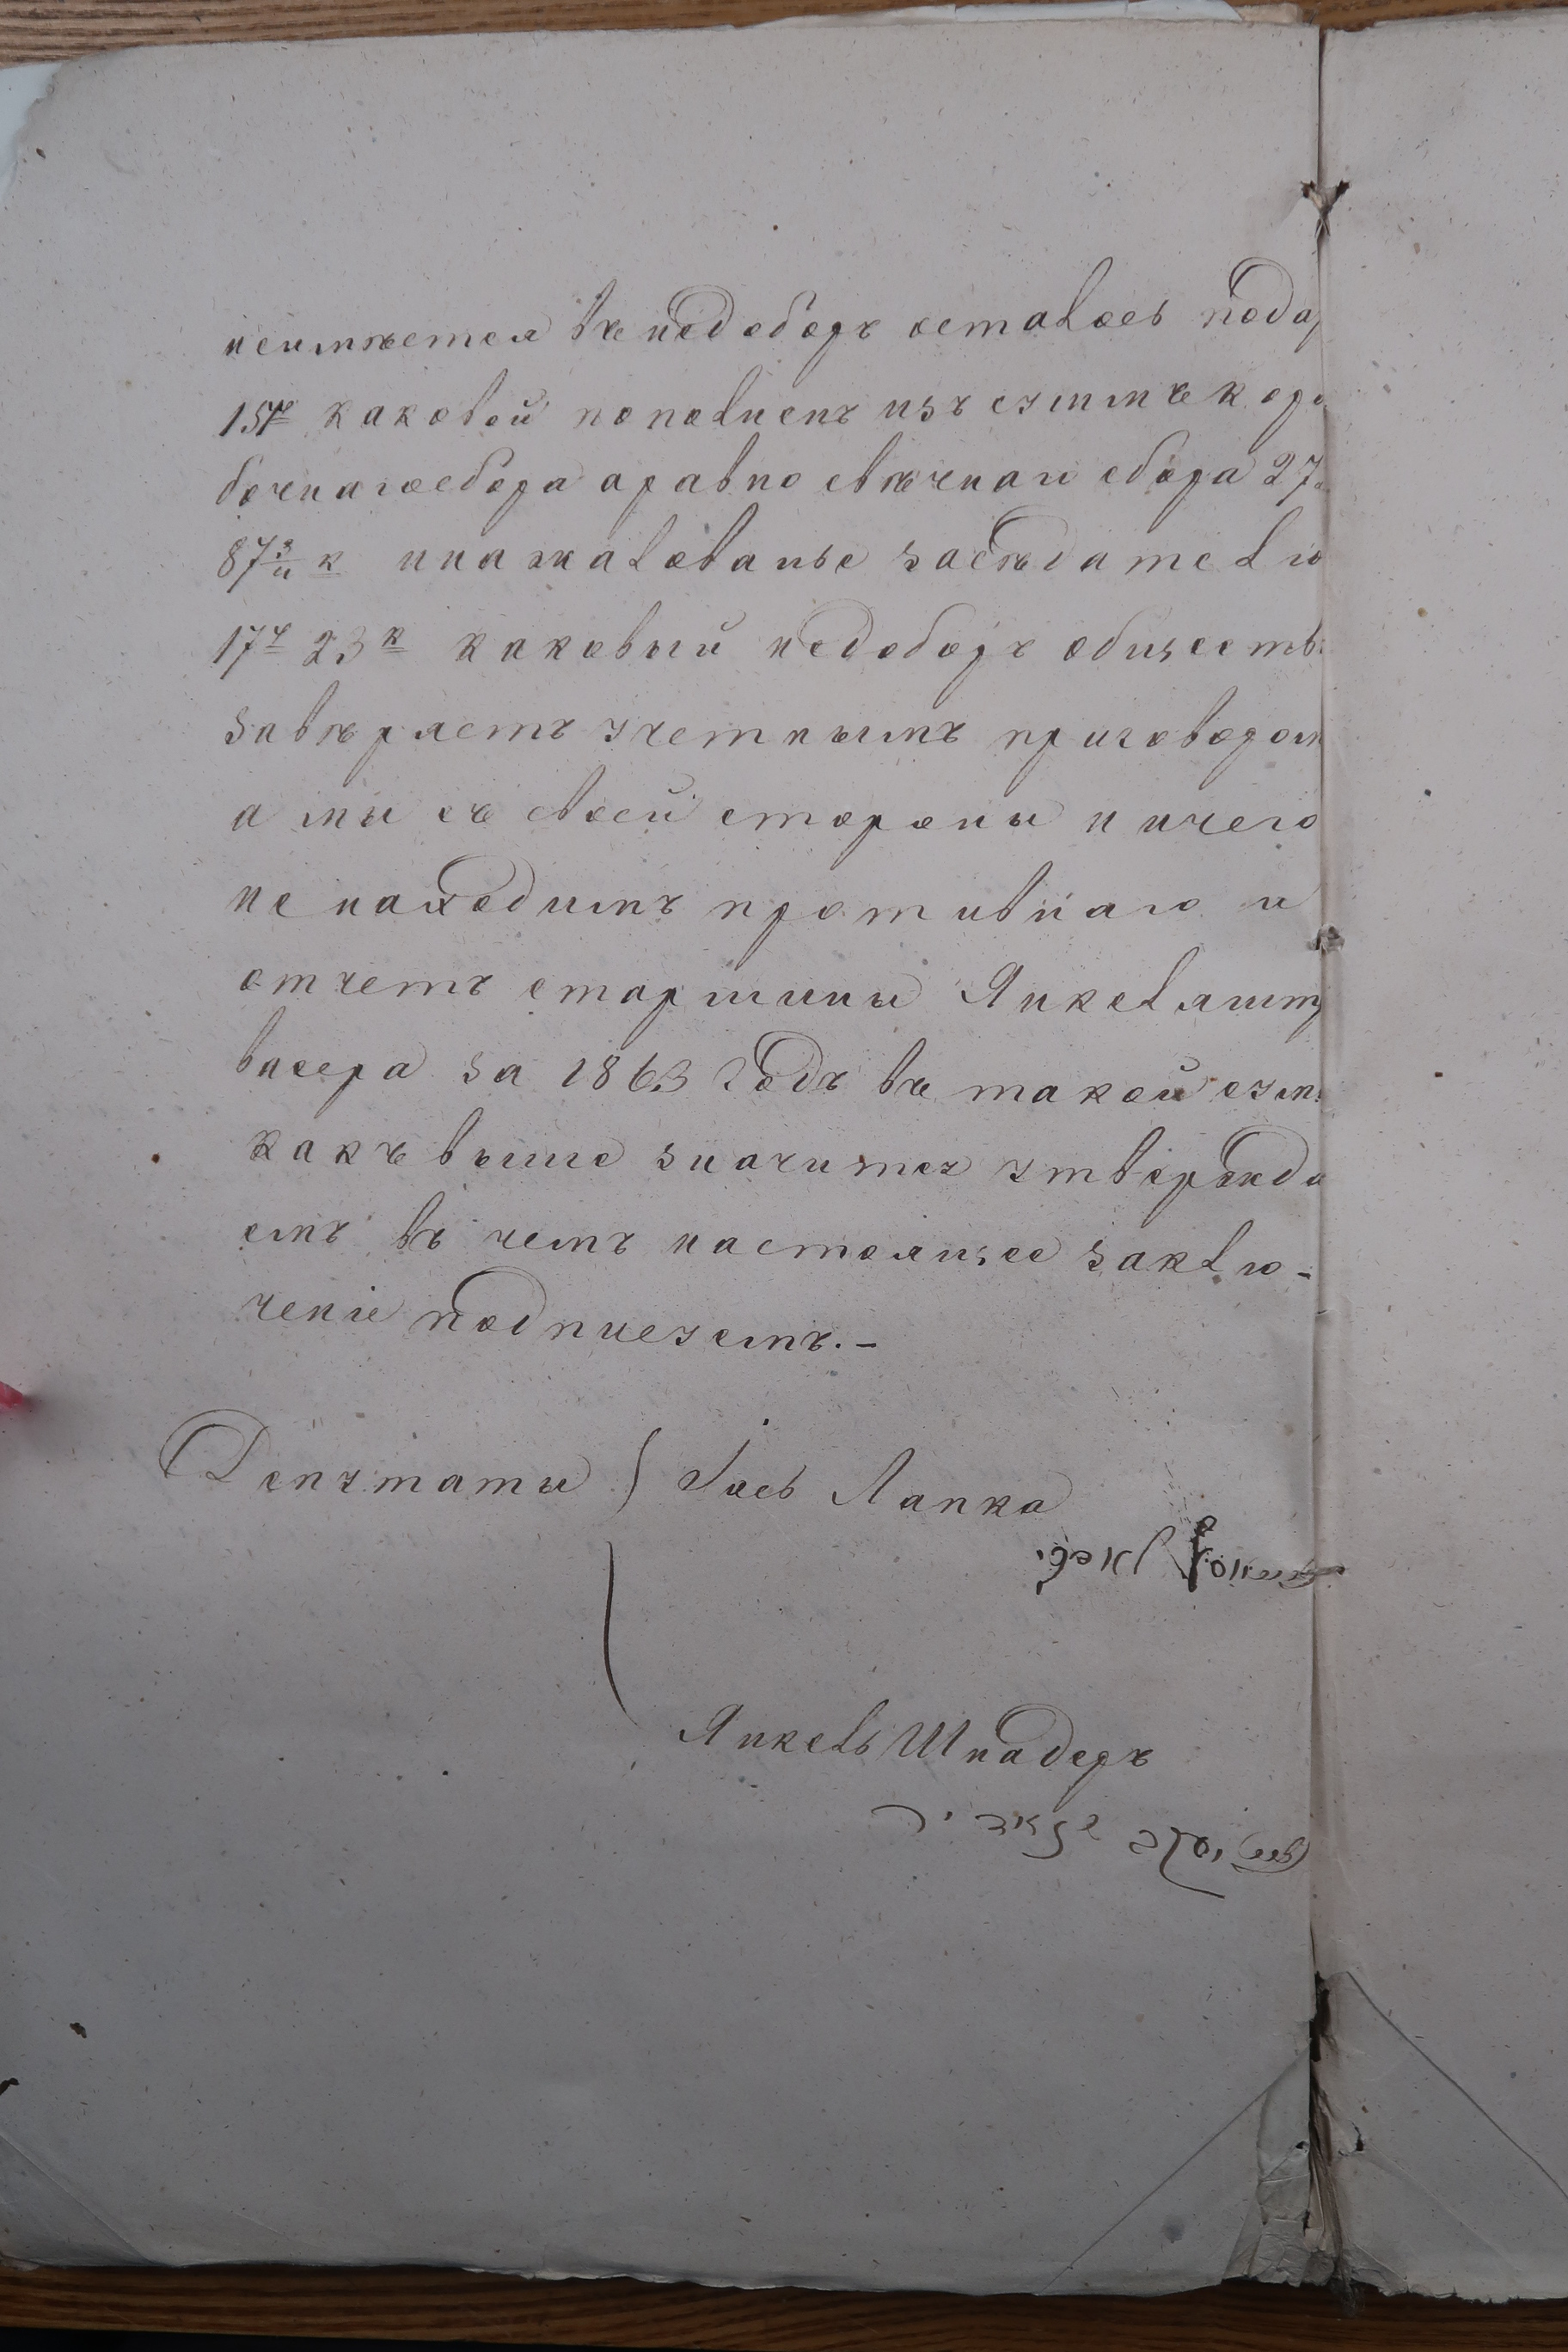 неимѣется въ недоборѣ осталось пода
15р каковой пополненъ изъ суммъ коро
бочнагосбора аравно свѣчнаго сбора 27р
87¾ к инажалованье засѣдателю
17р 23к каковый недоборъ обществ
завѣряетъ учетнымъ приговором
а мы съ своей стороны ничего
не находимъ противнаго и
отчетъ старшины Янкеля
васера за 1863 годъ въ такой сум
какъ выше значится утвержда
емъ въ чемъ настоящее заклю-
ченіе подписуемъ.-
Депутаты Іось Лапка
Янкель Шнадеръ